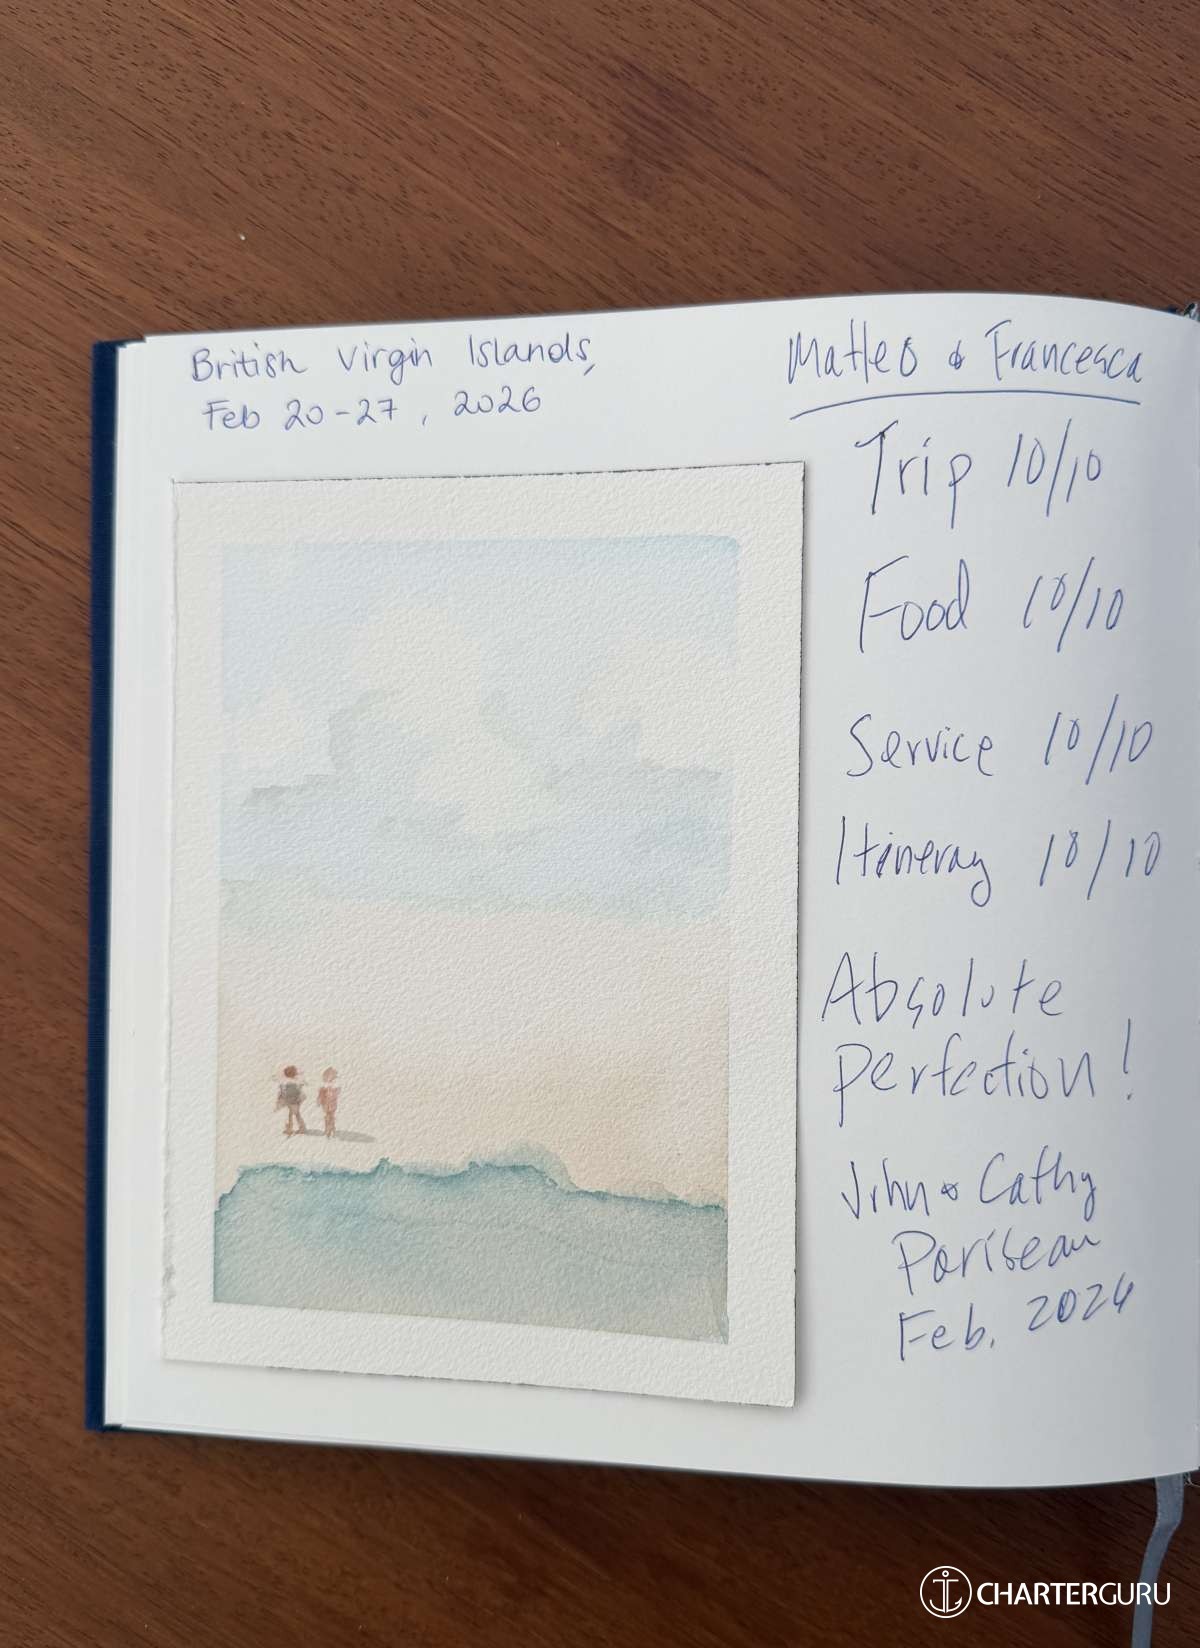 British Virgin Islands,
Feb 20-27, 2026
Matteo & Francesca
Trip 10/10
Food 10/10
Service 10/10
Itineray 10/10
Absolute
perfection!
John & Cathy
Pariseau
Feb. 2026
CHARTERGURU